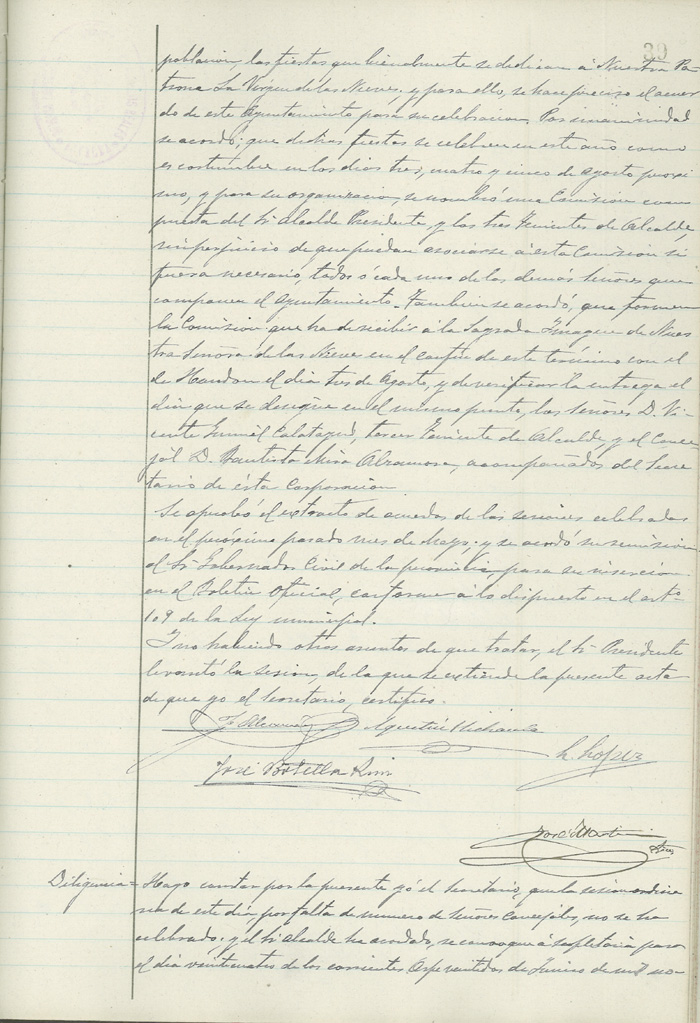 39
poblacion, las fiestas que bienalmente se dedican á Nuestra Pa-
trona La Virgen de las Nieves; y para ello, se hace preciso el acuer-
do de este Ayuntamiento para su celebracion. Por unanimidad
se acordó; que dichas fiestas se celebren en este año como
es costumbre en los dias tres, cuatro y cinco de Agosto proxi-
mo, y para su organizacion, se nombró una Comision com-
puesta del Sr. Alcalde Presidente, y los tres Tenientes de Alcalde,
sin perjuicio de que puedan asociarse á esta Comision si
fuera necesario, todos ó cada uno de los demás Señores que
componen el Ayuntamiento. Tambien se acordó, que formen
la Comision que ha de recibir á la Sagrada Imagen de Nues
tra Señora de las Nieves en el confin de este termino con el
de Hondon el dia tres de Agosto, y de verificar la entrega el
dia que se designe en el mismo punto, los Señores D. Vi-
cente Calatayud, tercer Teniente de Alcalde y el Conce-
jal D. Bautista Mira acompañados del Secre
tario de ésta Corporacion
Se aprobó el extracto de acuerdos de las sesiones celebradas
en el próximo pasado mes de Mayo; y se acordó su remision
al Sr. Gobernador Civil de la provincia, para su insercion
en el Boletin Oficial, conforme á lo dispuesto en el arto
109 de la ley municipal.
Y no habiendo otros asuntos de que tratar, el Sr. Presidente
levantó la sesion, de la que se extiende la presente acta
de que yo el Secretario, certifico.
Agustin
L. Lopez
José Botella
José Martin
Diligencia = Hago constar por la presente yó el Secretario, que la sesion ordina
ria de este dia, por falta de numero de Señores Concejales, no se ha
celebrado; y el Sr. Alcalde ha acordado, se convoque á supletoria para
el dia veinticuatro de los corrientes Aspe veintidos de Junio de mil no-